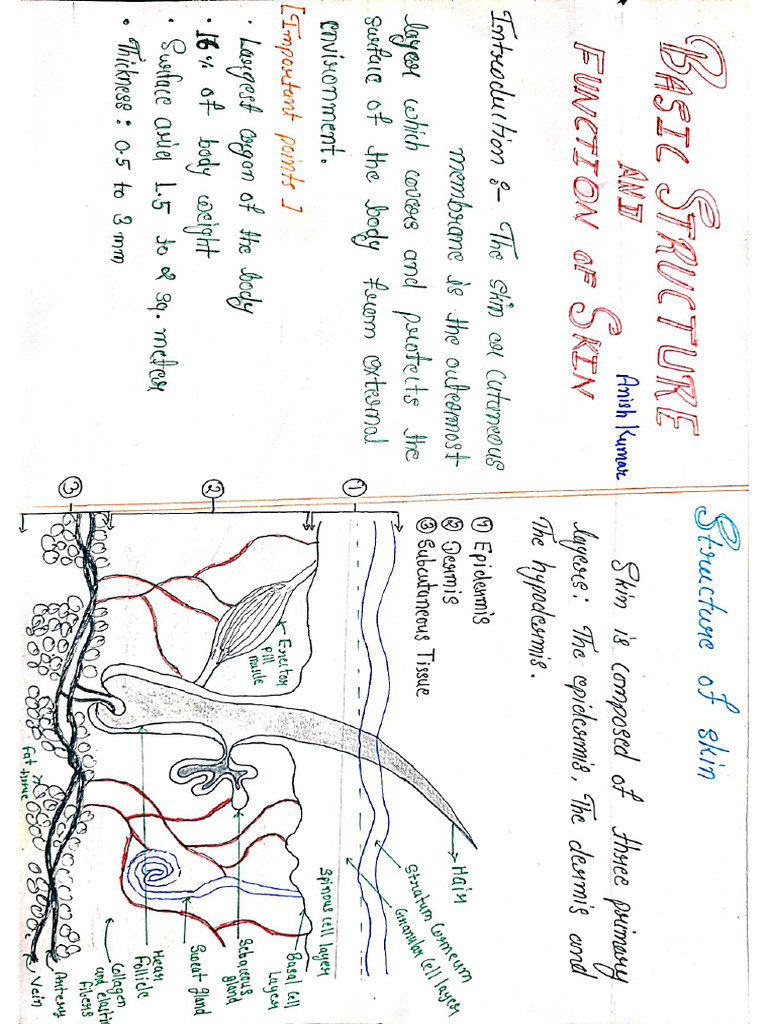 BASIC STRUCTURE
AND
FUNCTION OF SKIN
Anish Kumar
Introduction :- The skin or cutaneous
membrane is the outermost
layer which covers and protects the
surface of the body from external
environment.
[Important points]
• Largest organ of the body
• 16% of body weight
• Surface area 1.5 to 2 sq. meter
• Thickness : 0.5 to 3 mm
Structure of skin
Skin is composed of three primary
layers: The epidermis, The dermis and
The hypodermis.
① Epidermis
② Dermis
③ Subcutaneous Tissue
①
②
③
Hair
Stratum Corneum
Granular cell layer
Spinous cell layer
Basal cell
Layer
Sebaceous
gland
Sweat gland
Hair
follicle
Collagen
and elastin
fibers
Artery
Vein
Erector
pili
muscle
Fat
tissue